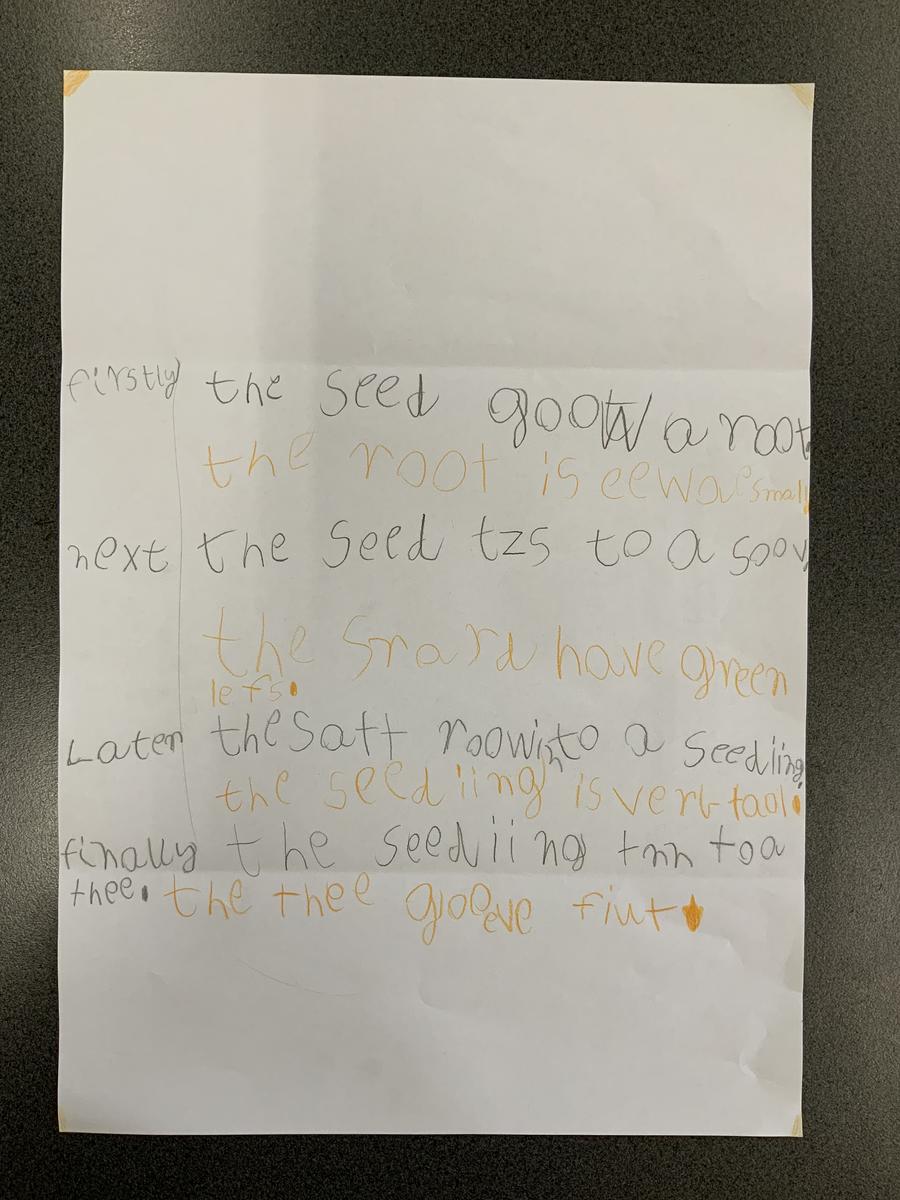 firstly the seed gootw a root
the root is eewove small
next the seed tzs to a soov
the snard have green
lefs.
Later the satt roowinto a seediing.
the seediing is verb taol.
finally the seediing tnn to a
thee. the thee gooeve fiut